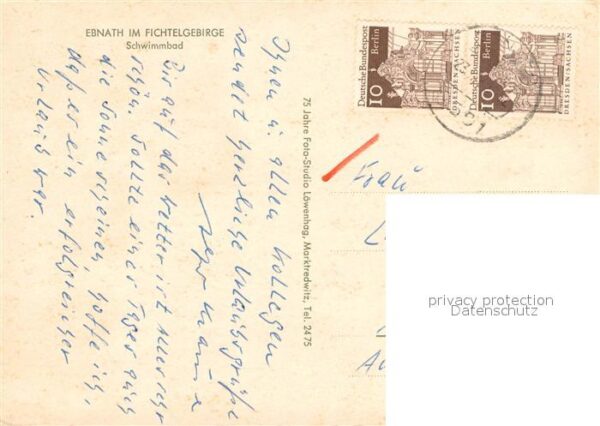 EBNATH IM FICHTELGEBIRGE
Schwimmbad
Ihnen u. allen Kollegen
sendet herzliche Urlaubsgrüße
Ihr
Bis auf das Wetter ist alles sehr
schön. Sollte eines Tages auch
die Sonne scheinen, hoffe ich,
daß es ein erfolgreicher
Urlaub war.
75 Jahre Foto-Studio Löwenhag, Marktredwitz, Tel. 2475
Deutsche Bundespost
Berlin
10
DRESDEN-SACHSEN
Deutsche Bundespost
Berlin
10
DRESDEN-SACHSEN
Frau
privacy protection
Datenschutz